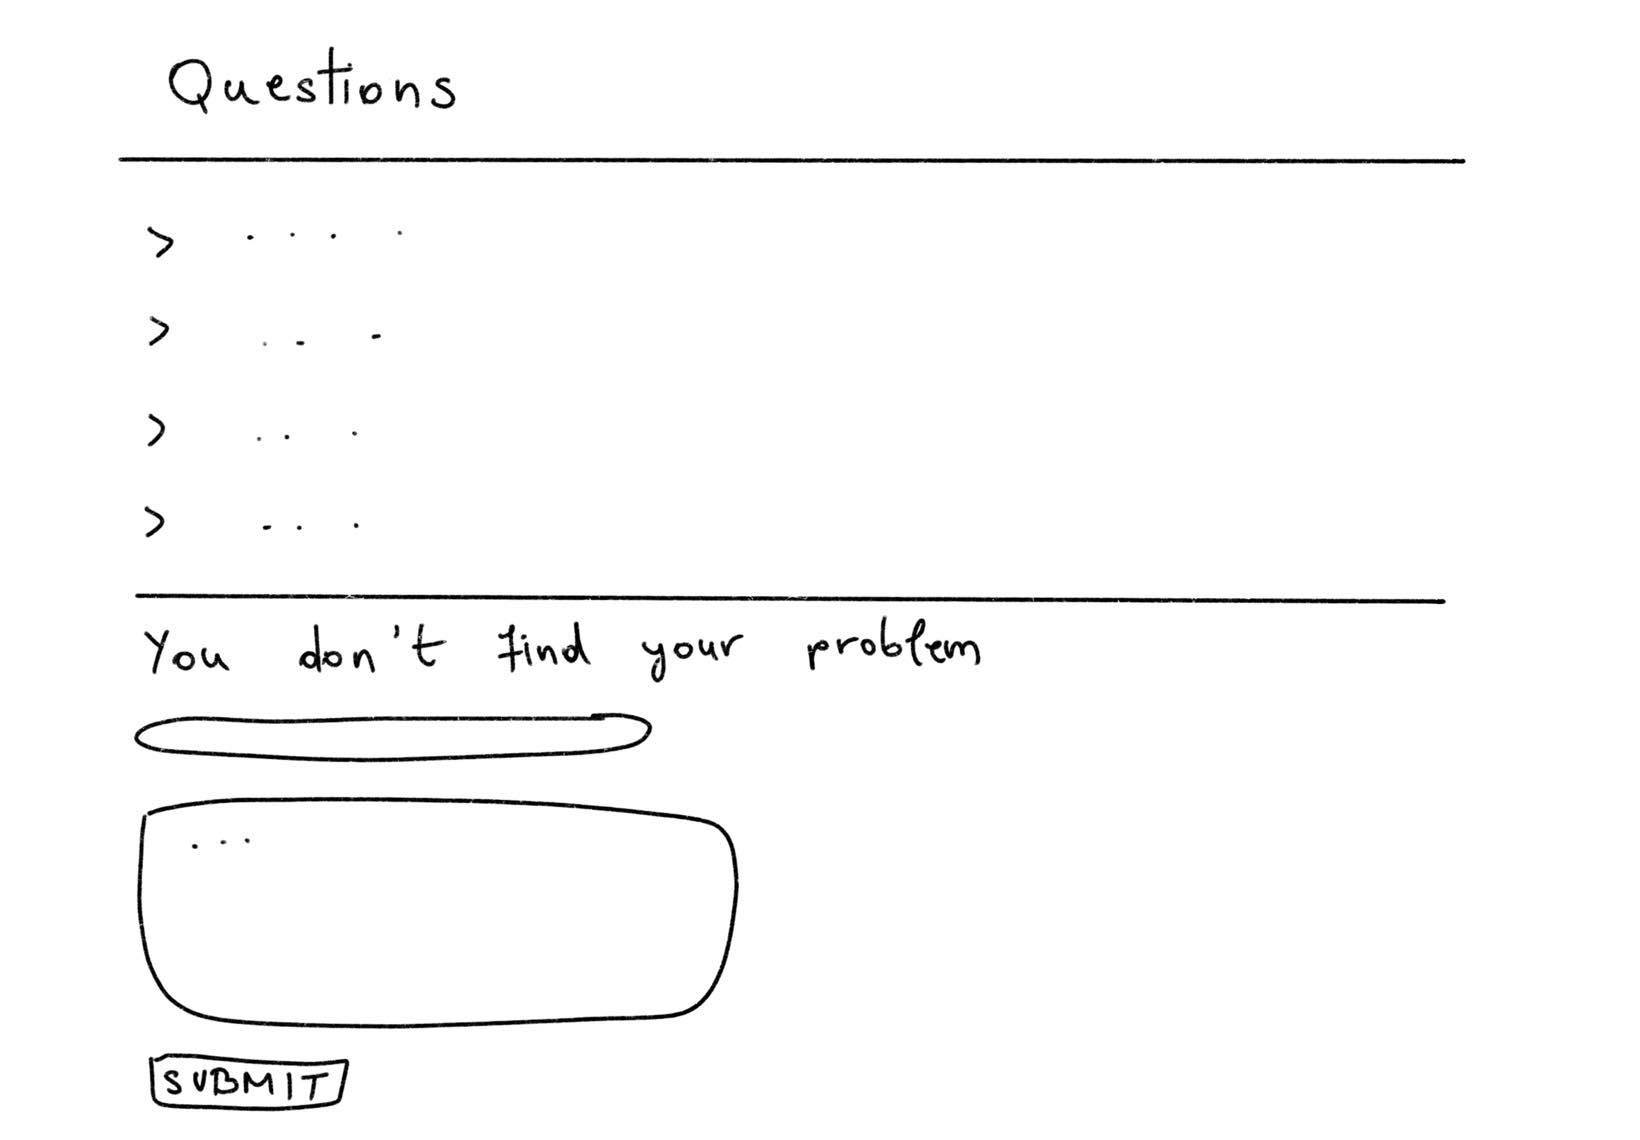 Questions
> . . . .
> . . .
> . . .
> . . .
You don't find your problem
...
SUBMIT